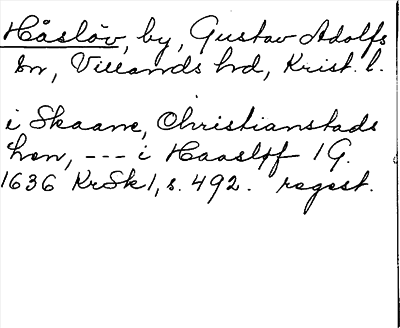 Håslöv, by, Gustav Adolfs
sn, Villands hd, Krist. l.
i Skaane, Christianstads
len, --- i Haasløf 1 G.
1636 KrSk 1, s. 492. regest.